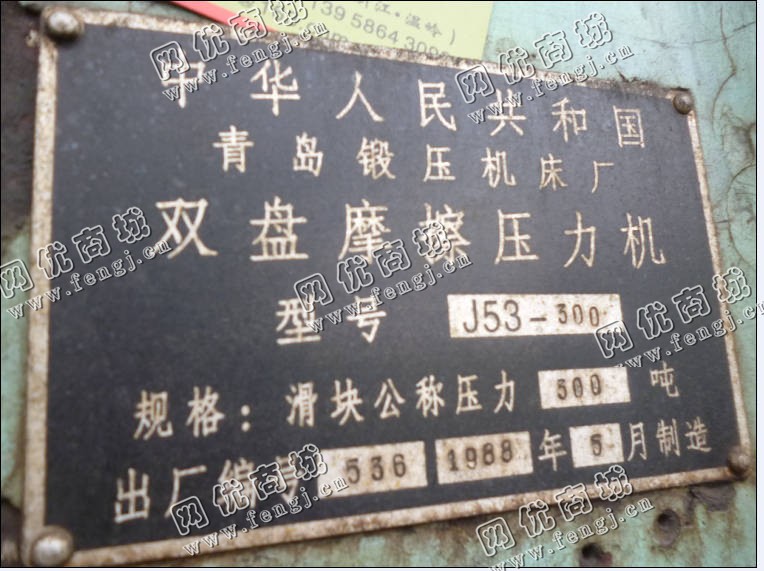 江·温岭)
中华人民共和国
青岛锻压机床厂
双盘摩擦压力机
型号 J53-300
规格：滑块公称压力 300 吨
出厂编号 536 1988 年 5 月制造
网优商城
www.fengj.cn
网优商城
www.fengj.cn
网优商城
www.fengj.cn
网优商城
www.fengj.cn
网优商城
www.fengj.cn
网优商城
www.fengj.cn
网优商城
www.fengj.cn